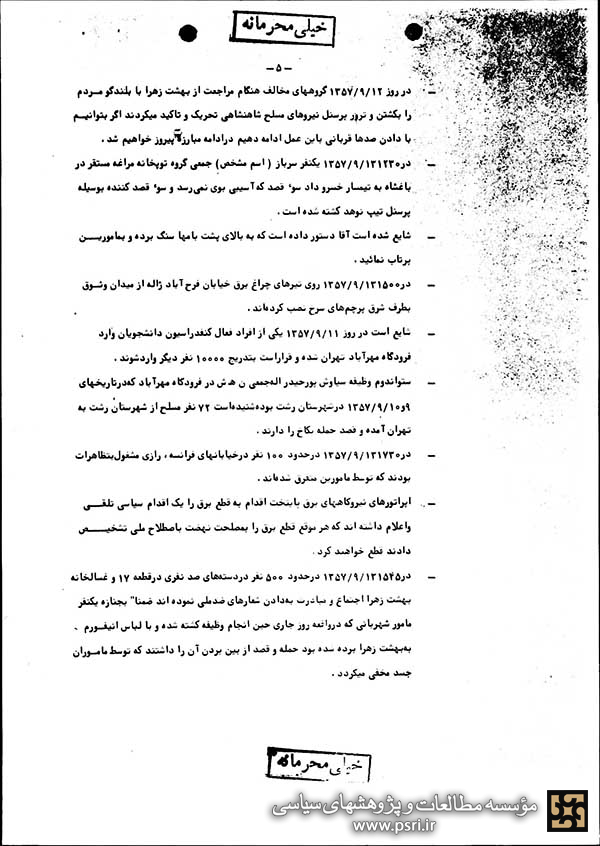 خیلی محرمانه
-۵-
- در روز ۱۳۵۷/۹/۱۲ گروههای مخالف هنگام مراجعت از بهشت زهرا با بلندگو مردم
را بکشتن و ترور پرسنل نیروهای مسلح شاهنشاهی تحریک و تاکید میکردند اگر بتوانیم
با دادن صدها قربانی باین عمل ادامه دهیم درادامه مبارزه پیروز خواهیم شد .
- در۱۳۵۷/۹/۱۳۱۲۳۰ یکنفر سرباز ( اسم مشخص) جمعی گروه توپخانه مراغه مستقر در
باغشاه به تیمسار خسرو داد سوء قصد که آسیبی بوی نمی‌رسد و سوء قصد کننده بوسیله
پرسنل تیپ نوهد کشته شده است .
- شایع شده است آقا دستور داده است که به بالای پشت بامها سنگ برده و بمامورین
پرتاب نمائید .
- در۱۳۵۷/۹/۱۳۱۵۰۰ روی تیرهای چراغ برق خیابان فرح آباد ژاله از میدان وثوق
بطرف شرق پرچم‌های سرخ نصب کرده‌اند .
- شایع است در روز ۱۳۵۷/۹/۱۱ یکی از افراد فعال کنفدراسیون دانشجویان وارد
فرودگاه مهرآباد تهران شده و قراراست بتدریج ۱۰۰۰۰ نفر دیگر واردشوند .
- ستواندوم وظیفه سیاوش پورحیدر اله‌جمعی ن ه‍ ش در فرودگاه مهرآباد که‌درتاریخهای
۹و۱۳۵۷/۹/۱۰ درشهرستان رشت بوده‌شنیده‌است ۷۲ نفر مسلح از شهرستان رشت به
تهران آمده و قصد حمله بکاخ را دارند .
- در۱۳۵۷/۹/۱۳۱۷۳۰ درحدود ۱۰۰ نفر درخیابانهای فرانسه ، رازی مشغول‌بتظاهرات
بودند که توسط مامورین متفرق شده‌اند .
- اپراتورهای نیروگاههای برق پایتخت اقدام به قطع برق را یک اقدام سیاسی تلقی
واعلام داشته اند که هر موقع قطع برق را بمصلحت نهضت باصطلاح ملی تشخیص
دادند قطع خواهند کرد .
- در۱۳۵۷/۹/۱۳۱۵۴۵ درحدود ۵۰۰ نفر دردسته‌های صد نفری درقطعه ۱۷ و غسالخانه
بهشت زهرا اجتماع و مبادرت به‌دادن شعارهای ضدملی نموده اند ضمنا" بجنازه یکنفر
مامور شهربانی که درواقعه روز جاری حین انجام وظیفه کشته شده و با لباس انیفورم
به‌بهشت زهرا برده شده بود حمله و قصد از بین بردن آن را داشتند که توسط ماموران
جسد مخفی میگردد .
خیلی محرمانه
مؤسسه مطالعات و پژوهشهای سیاسی
www.psri.ir